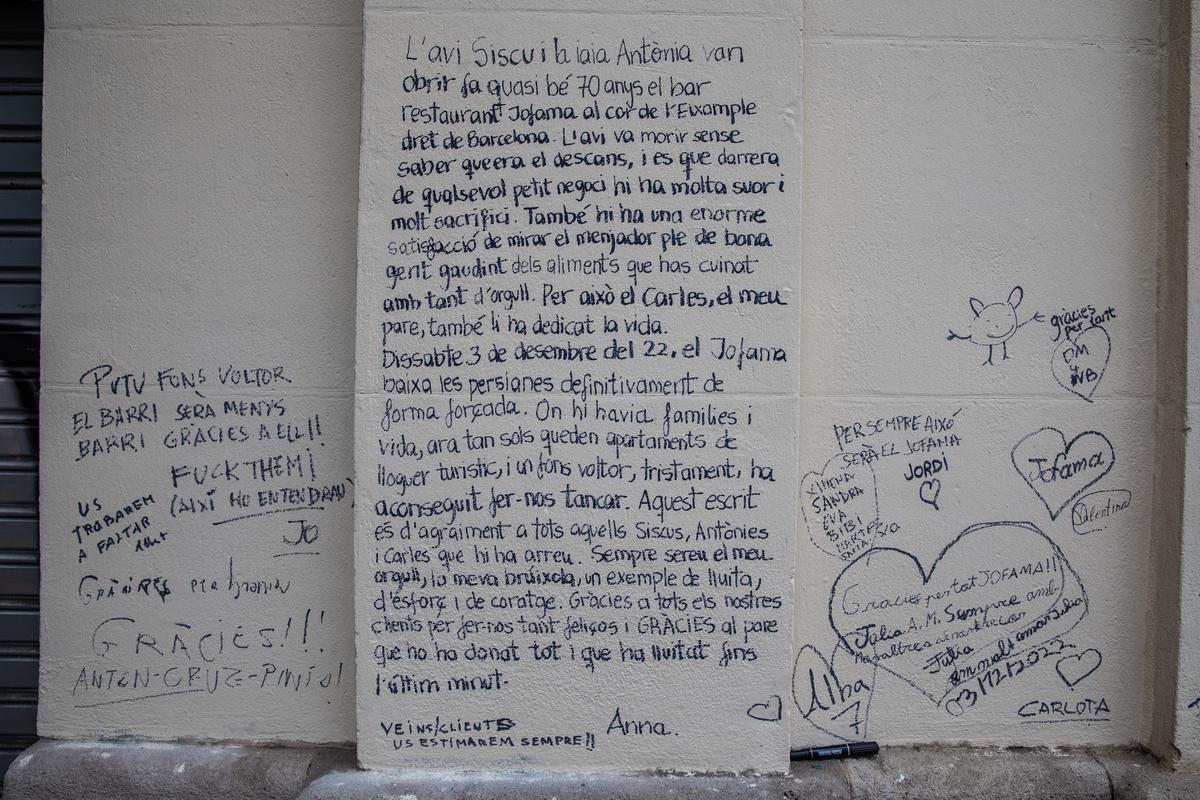 L'avi Siscu i la iaia Antònia van
obrir fa quasi bé 70 anys el bar
restaurant Jofama al cor de l'Eixample
dret de Barcelona. L'avi va morir sense
saber que era el descans, i es que darrera
de qualsevol petit negoci hi ha molta suor i
molt sacrifici. També hi ha una enorme
satisfacció de mirar el menjador ple de bona
gent gaudint dels aliments que has cuinat
amb tant d'orgull. Per això el Carles, el meu
pare, també li ha dedicat la vida.
Dissabte 3 de desembre del 22, el Jofama
baixa les persianes definitivament de
forma forçada. On hi havia famílies i
vida, ara tan sols queden apartaments de
lloguer turístic, i un fons voltor, tristament, ha
aconseguit fer-nos tancar. Aquest escrit
és d'agraïment a tots aquells Siscus, Antònies
i Carles que hi ha arreu. Sempre sereu el meu
orgull, la meva brúixola, un exemple de lluita,
d'esforç i de coratge. Gràcies a tots els nostres
clients per fer-nos tant feliços i GRÀCIES al pare
que ho ha donat tot i que ha lluitat fins
l'últim minut.
Anna.
VEINS/CLIENTS
US ESTIMAREM SEMPRE!!
PUTU FONS VOLTOR
EL BARRI SERÀ MENYS
BARRI GRÀCIES A ELL!!
FUCK THEM!
(AIXÍ HO ENTENDRAN)
JO
US
TROBAREM
A FALTAR
GRÀCIES!!!
ANTON-CRUZ-
gràcies
per tant
DM
y
NB
PER SEMPRE AIXÓ
SERÀ EL JOFAMA
JORDI
XIMENA
SANDRA
EVA
BIBI
Jofama
Valentina
Gracies per tot JOFAMA!!
Júlia A. M. Sempre amb
Júlia
3/12/2022
Alba
7
CARLOTA